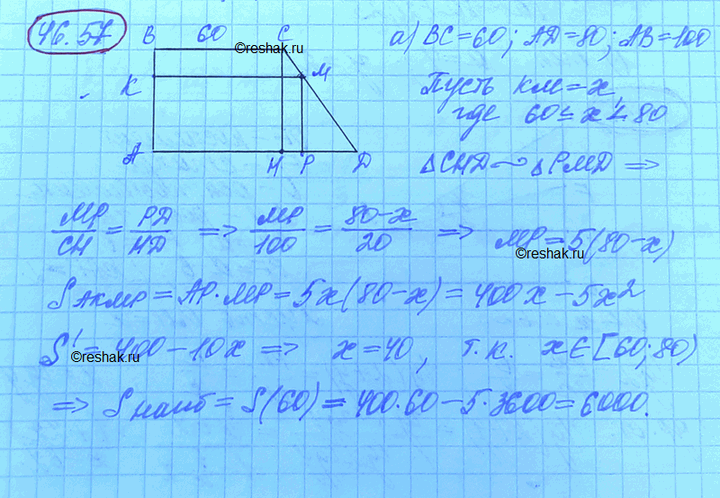 46.57
B 60 C
©reshak.ru
a) BC=60; AD=80; AB=100
K M
Пусть KM=x,
где 60≤x<80
A H P D
△CHD∾△PMD ⇒
MP/CH = PD/HD ⇒ MP/100 = 80-x/20 ⇒ MP=5(80-x)
©reshak.ru
S AKMP = AP·MP = 5x(80-x) = 400x-5x²
S' = 400-10x ⇒ x=40, т.к. x∈[60;80)
©reshak.ru
⇒ S наиб = S(60) = 400·60-5·3600 = 6000.